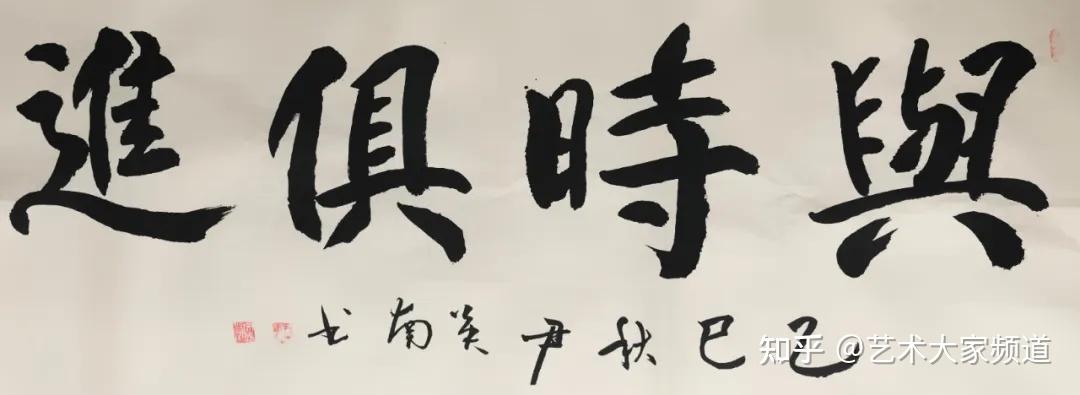 與時俱進
乙巳秋尹炎南书
知乎 @艺术大家频道